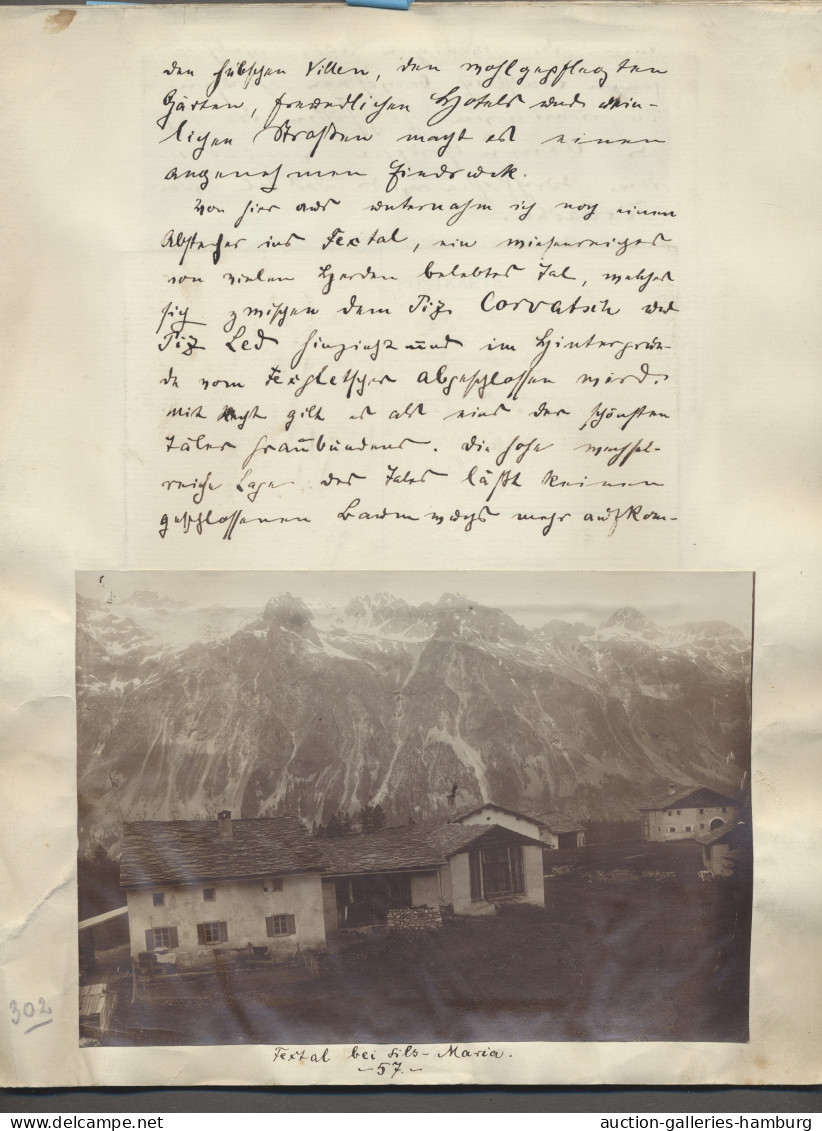 den hübschen Villen, den wohlgepflegten
Gärten, freundlichen Hotels und rein-
lichen Straßen macht es einen
angenehmen Eindruck.
Von hier aus unternahm ich noch einen
Abstecher ins Fextal, ein wiesenreiches
von vielen Herden belebtes Tal, welches
sich zwischen dem Piz Corvatsch und
Piz Led hinzieht und im Hintergrun-
de vom Fexgletscher abgeschlossen wird.
Mit Recht gilt es als eins der schönsten
Täler Graubündens. Die hohe
reiche Lage des Tales läßt keinen
geschlossenen Baumwuchs mehr aufkom-
302
Fextal bei Sils-Maria.
-57.-
auction-galleries-hamburg